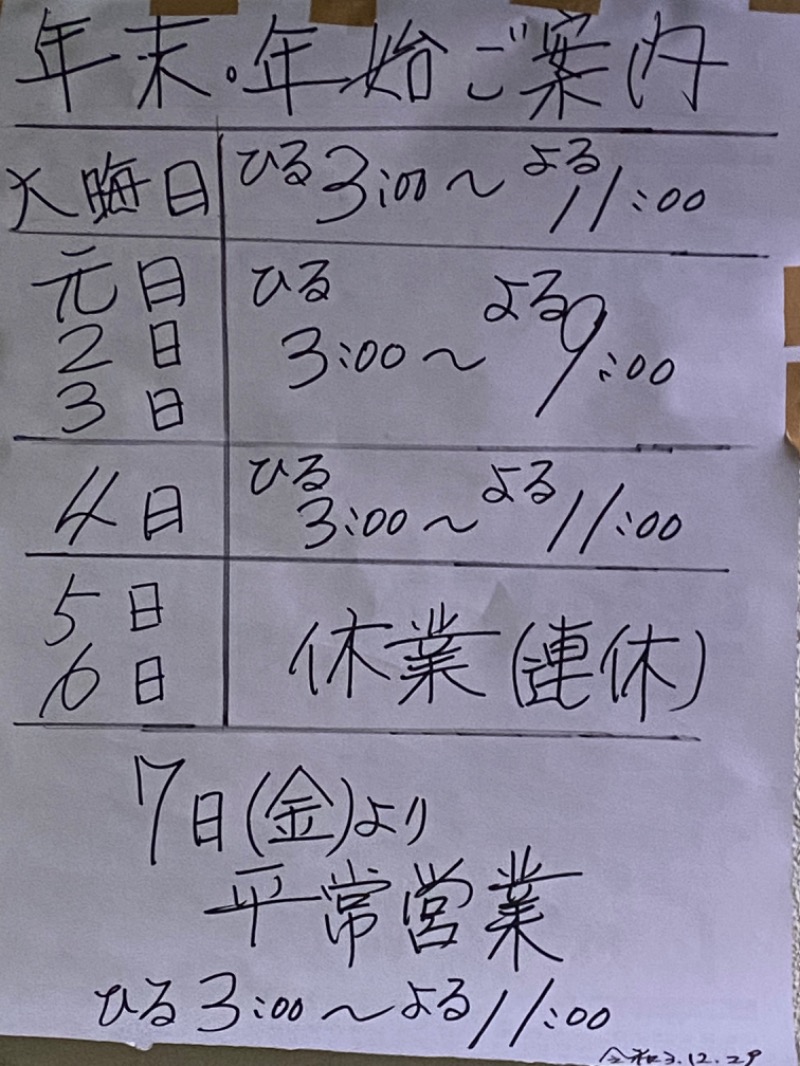 年末・年始ご案内
大晦日 ひる3:00～よる11:00
元日 ひる よる
2日 3:00～9:00
3日
4日 ひる3:00～よる11:00
5日
6日 休業(連休)
7日(金)より
平常営業
ひる3:00～よる11:00
令和3.12.29